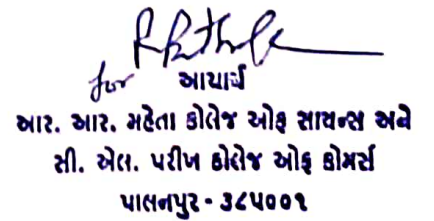 for આચાર્ય
આર. આર. મહેતા કોલેજ ઓફ સાયન્સ અને
સી. એલ. પરીખ કોલેજ ઓફ કોમર્સ
પાલનપુર - ૩૮૫૦૦૧